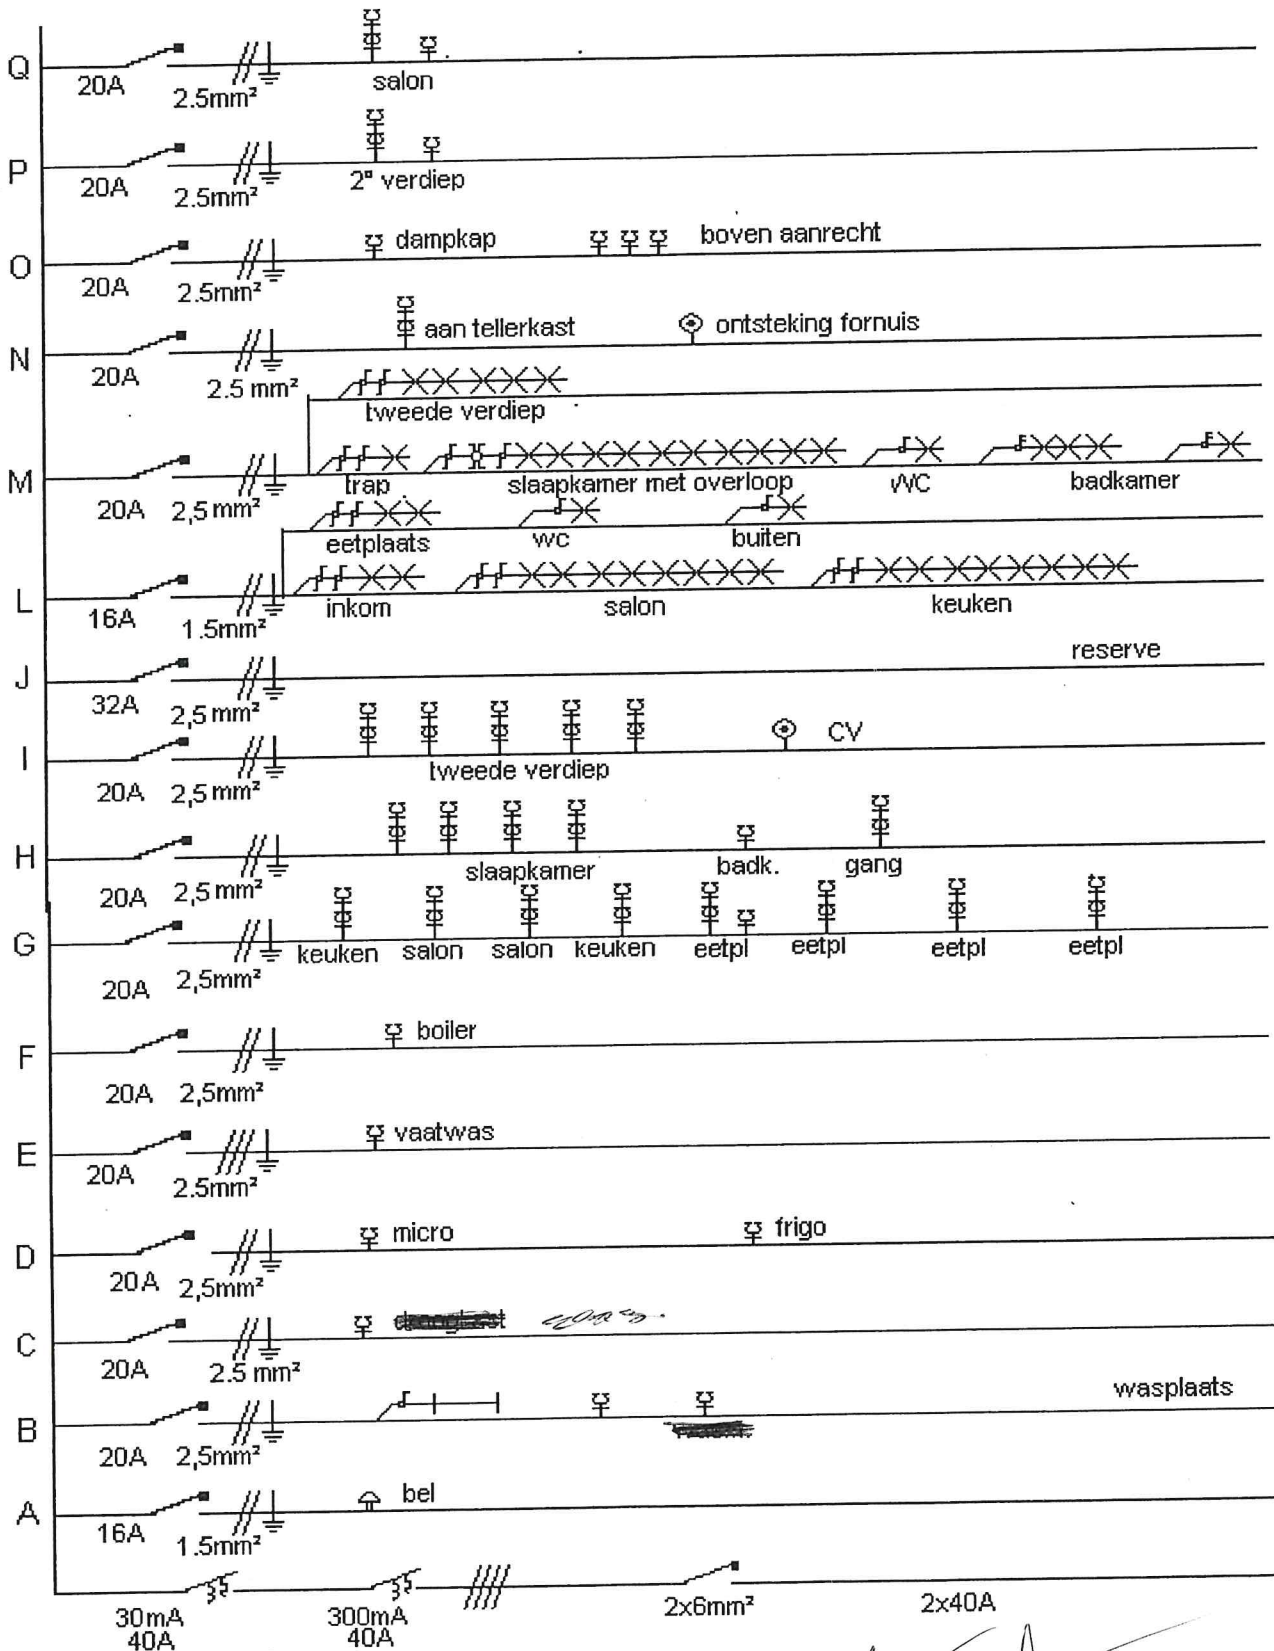 Q
20A
2.5mm²
salon
P
20A
2.5mm²
2ª verdiep
O
20A
2.5mm²
dampkap
boven aanrecht
N
20A
2.5 mm²
aan tellerkast
ontsteking fornuis
tweede verdiep
M
20A
2,5 mm²
trap
slaapkamer met overloop
WC
badkamer
eetplaats
wc
buiten
L
16A
1.5mm²
inkom
salon
keuken
J
32A
2,5 mm²
reserve
I
20A
2,5 mm²
tweede verdiep
CV
H
20A
2,5 mm²
slaapkamer
badk.
gang
G
20A
2,5mm²
keuken
salon
salon
keuken
eetpl
eetpl
eetpl
eetpl
F
20A
2,5mm²
boiler
E
20A
2.5mm²
vaatwas
D
20A
2,5mm²
micro
frigo
C
20A
2.5 mm²
B
20A
2,5mm²
wasplaats
A
16A
1.5mm²
bel
30mA
40A
300mA
40A
2x6mm²
2x40A